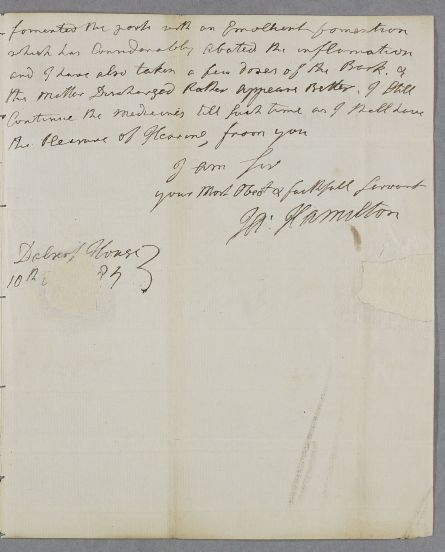 fomented the part with an Emolhent fomention
which has Considerably abated the inflamation
and I have also taken a few doses of the Bark. &
the matter Discharged Rather appears Better. I Still
Continue the medicines till Such time as I Shall have
the Pleasure of Hearing, from you
I am Sir
your Most Obedt & faithfull Servant
Ja: Hamilton
House
10th